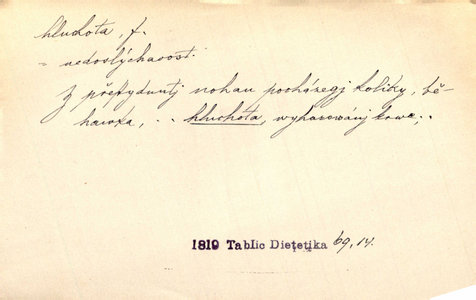 hluchota, f.
= nedoslýchavost.
Z přeſtydnutj nohau pocházegj koliky, bě-
hawka, .. hluchota, wyhazowánj krwe, ..
1819 Tablic Dietetika 69, 14.